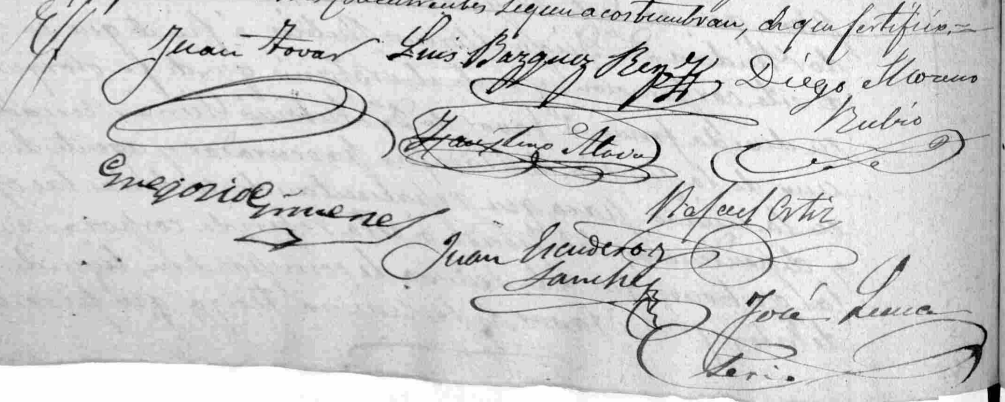 segun acostumbran, de que certifico.=
Juan Tovar Luis Bazquez Rey Diego Moreno
Rubio
Faustino Tovar
Gregorio Gimenes
Rafael Ortiz
Juan Escudero y
Sanchez
José Luna